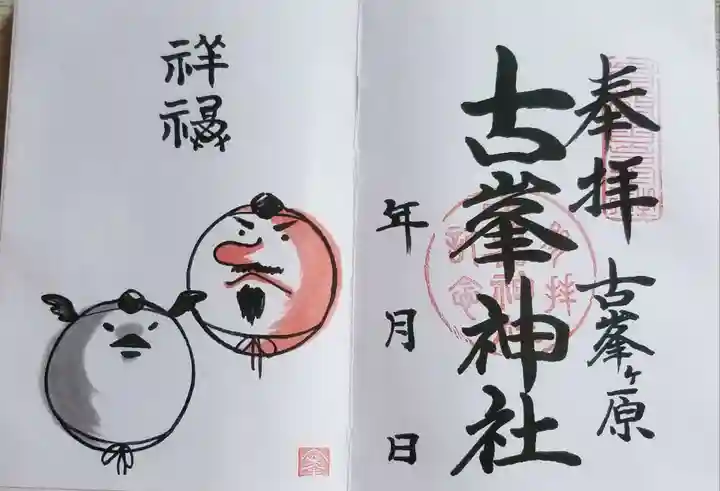 奉拝
古峯ヶ原
古峯神社
年
月
日
祥
禄